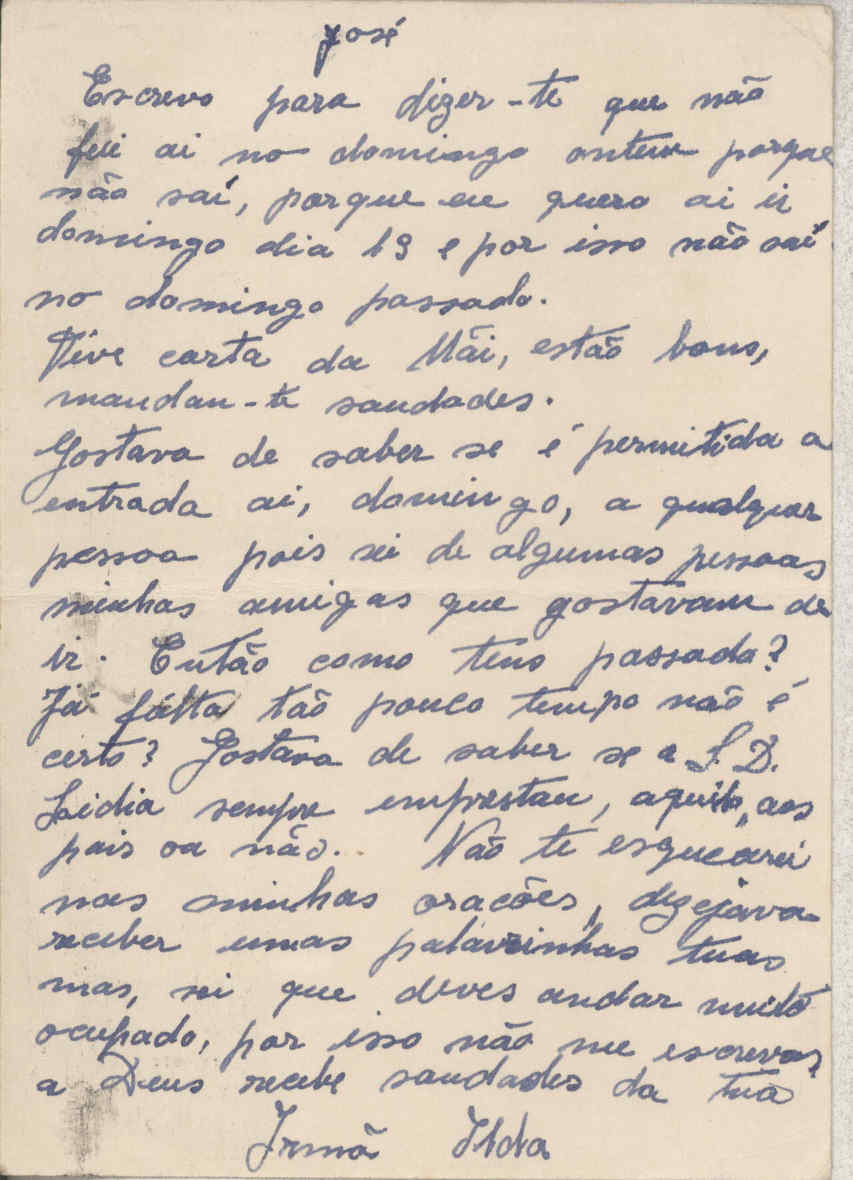 José
Escrevo para dizer-te que não
fui ai no domingo ontem porque
não saí, porque eu quero ai ir
domingo dia 19 e por isso não saí
no domingo passado.
Tive carta da Mãi, estão bons,
mandan-te saudades.
Gostava de saber se é permitida a
entrada ai, domingo, a qualquer
pessoa pois sei de algumas pessoas
minhas amigas que gostavam de
ir. Então como tens passado?
Já fálta tão pouco tempo não é
certo? Gostava de saber se a S. D.
Lidia sempre emprestau, aquilo, aos
pais ou não.. Não te esquecerei
nas minhas oracões, dezejava
receber umas palavrinhas tuas
mas, sei que deves andar muito
ocupado, por isso não me escrevas,
a Deus recebe saudades da tua
Irmã Ilda